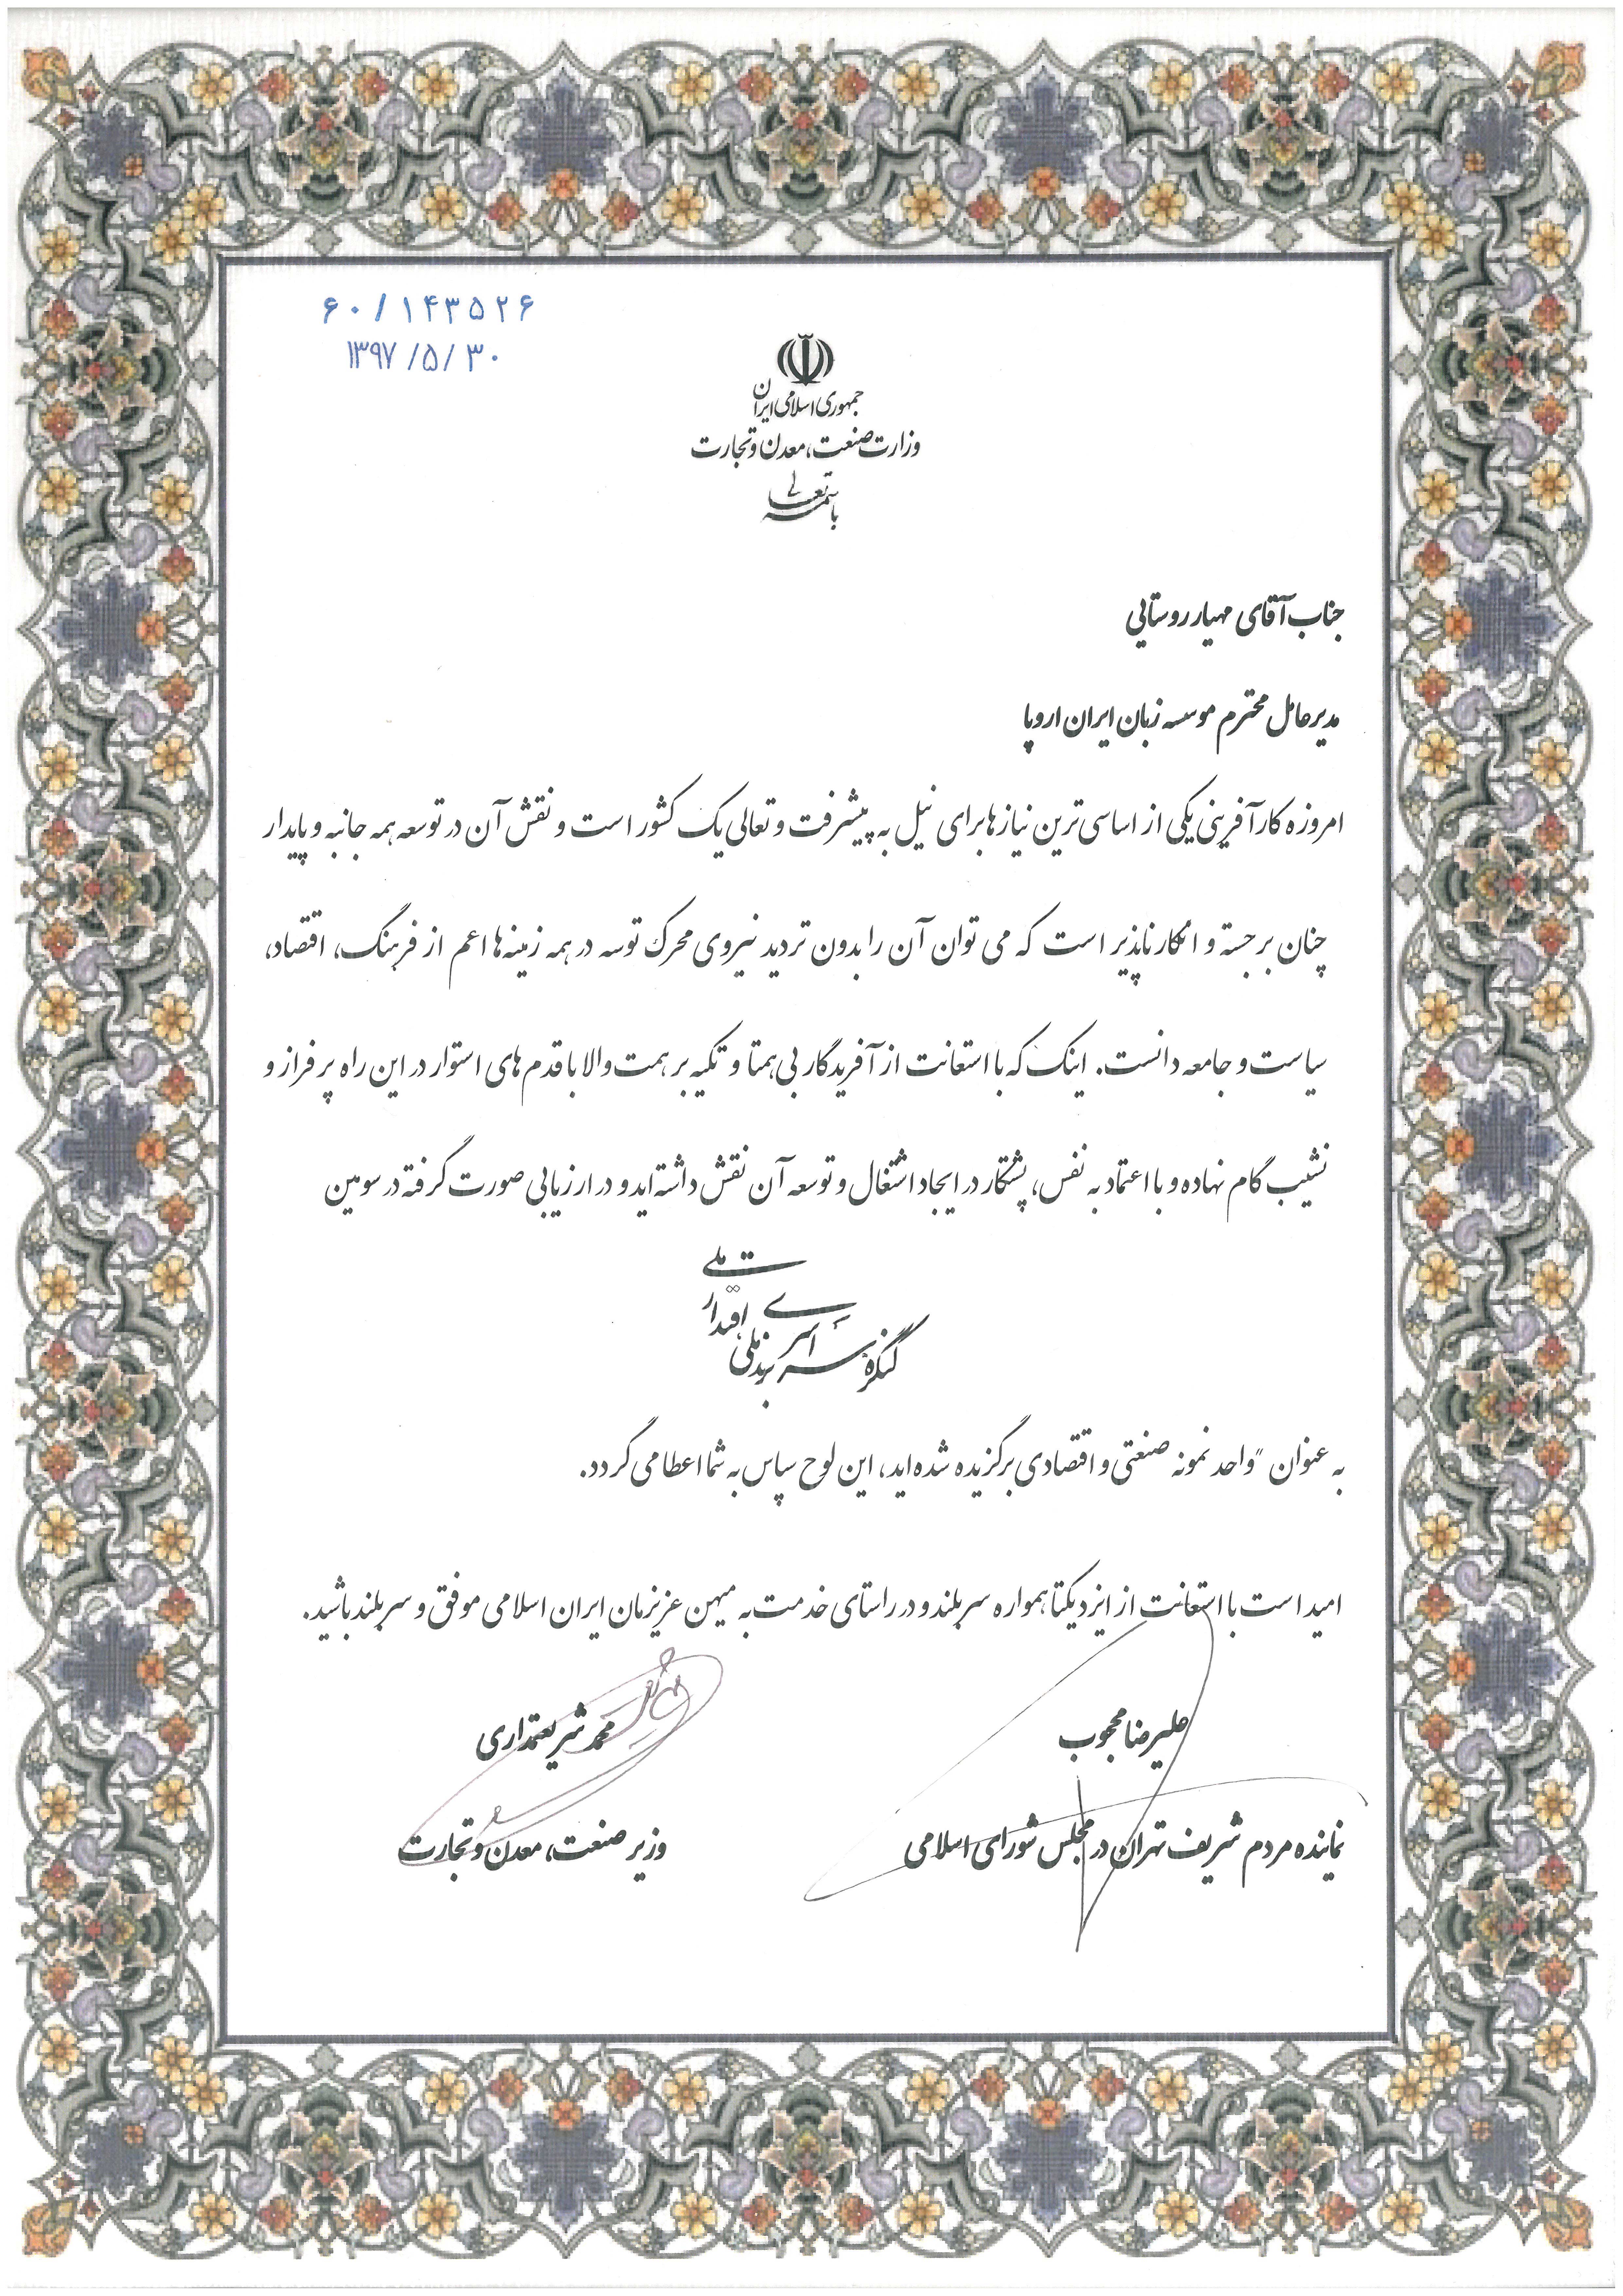 ۶۰/۱۴۳۵۲۶
۱۳۹۷/۵/۳۰
جمهوری اسلامی ایران
وزارت صنعت، معدن و تجارت
باسمه تعالی
جناب آقای مهیار روستایی
مدیرعامل محترم موسسه زبان ایران اروپا
امروزه کارآفرینی یکی از اساسی ترین نیازها برای نیل به پیشرفت و تعالی یک کشور است و نقش آن در توسعه همه جانبه و پایدار
چنان برجسته و انکارناپذیر است که می توان آن را بدون تردید نیروی محرک توسه در همه زمینه‌ها اعم از فرهنگ، اقتصاد،
سیاست و جامعه دانست. اینک که با استعانت از آفریدگار بی همتا و تکیه بر همت والا با قدم های استوار در این راه پر فراز و
نشیب گام نهاده و با اعتماد به نفس، پشتکار در ایجاد اشتغال و توسعه آن نقش داشته‌اید و در ارزیابی صورت گرفته در سومین
کنگره سراسری برند ملی، اقتدار ملی
به عنوان "واحد نمونه صنعتی و اقتصادی برگزیده شده‌اید، این لوح سپاس به شما اعطا می گردد.
امید است با استعانت از ایزد یکتا همواره سربلند و در راستای خدمت به میهن عزیزمان ایران اسلامی موفق و سربلند باشید.
علیرضا محجوب
محمد شریعتمداری
نماینده مردم شریف تهران در مجلس شورای اسلامی
وزیر صنعت، معدن و تجارت